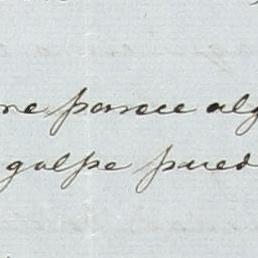 me parece alg
golpe pued